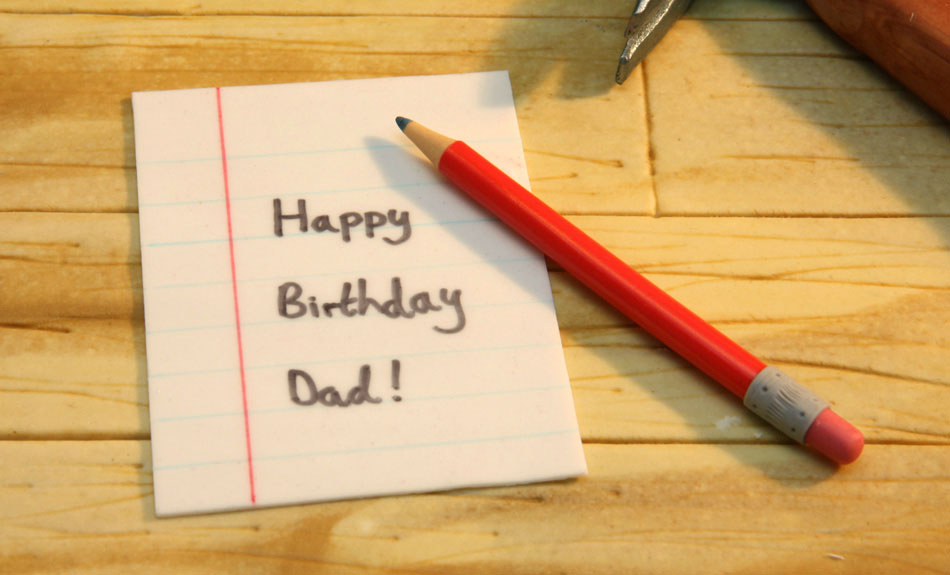 Happy
Birthday
Dad!